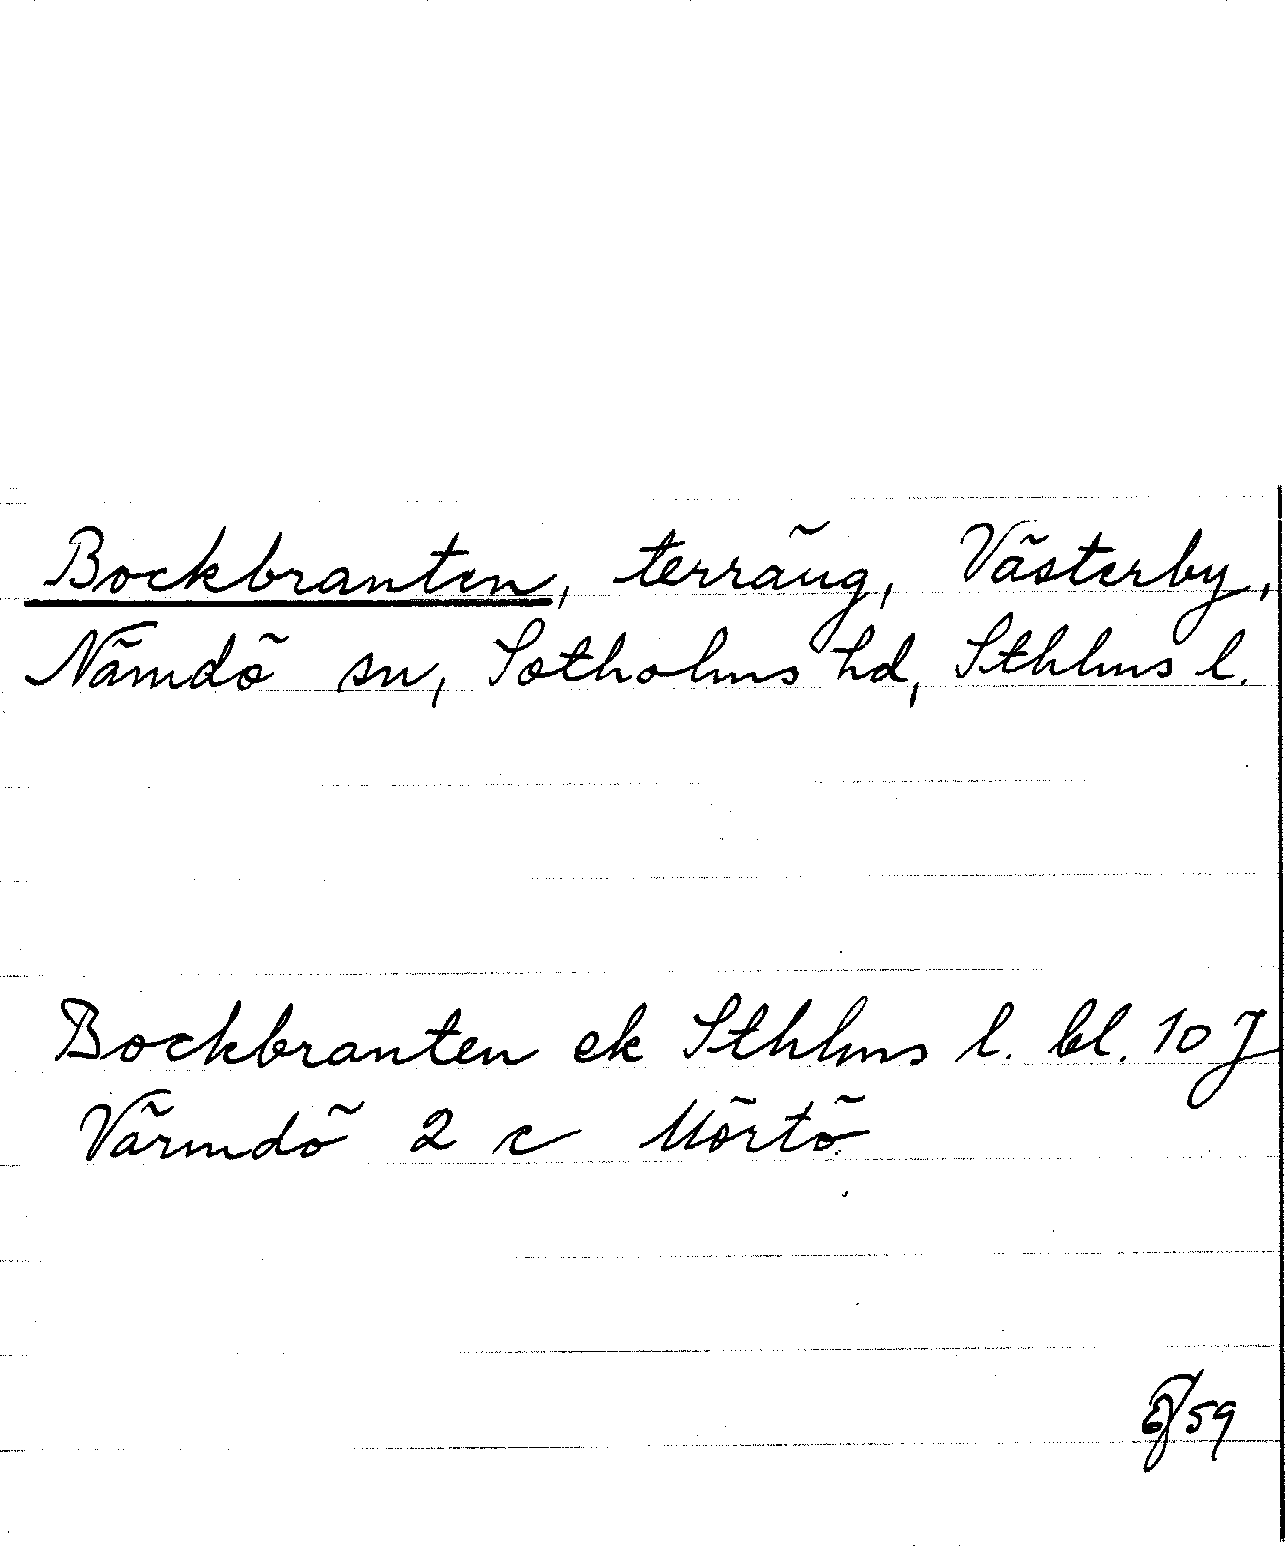 Bockbranten, terräng, Västerby,
Nämdö sn, Sotholms hd, Sthlms l.
Bockbranten ek Sthlms l. bl. 10 J
Värmdö 2 c Mörtö
59